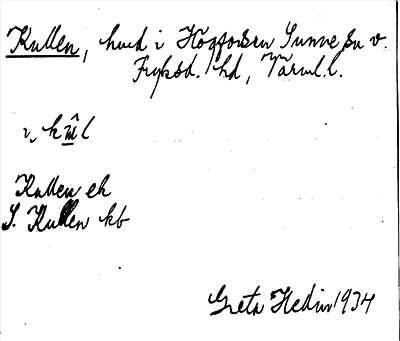 Kullen, hmd i Högforsen Sunne sn v.
Fryksd. hd, Värml. l.
i, kûl
Kullen ek
S. Kullen kb
Greta Hedin 1934